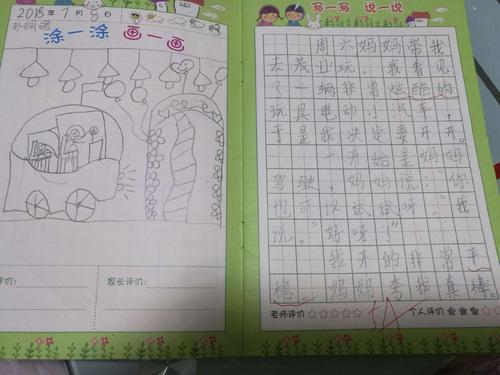 2018年7月8日
涂一涂 画一画
评价：
家长评价：
写一写 说一说
周六妈妈带我
去茂业玩。我看见
了一辆非常炫酷的
玩具电动小汽车，
于是我决定要开开。
一开始是妈妈
驾驶，妈妈说：“你
也可以试试呀。”我
说。“好呀！”
我开的非常平
稳。妈妈夸我真棒
老师评价
个人评价